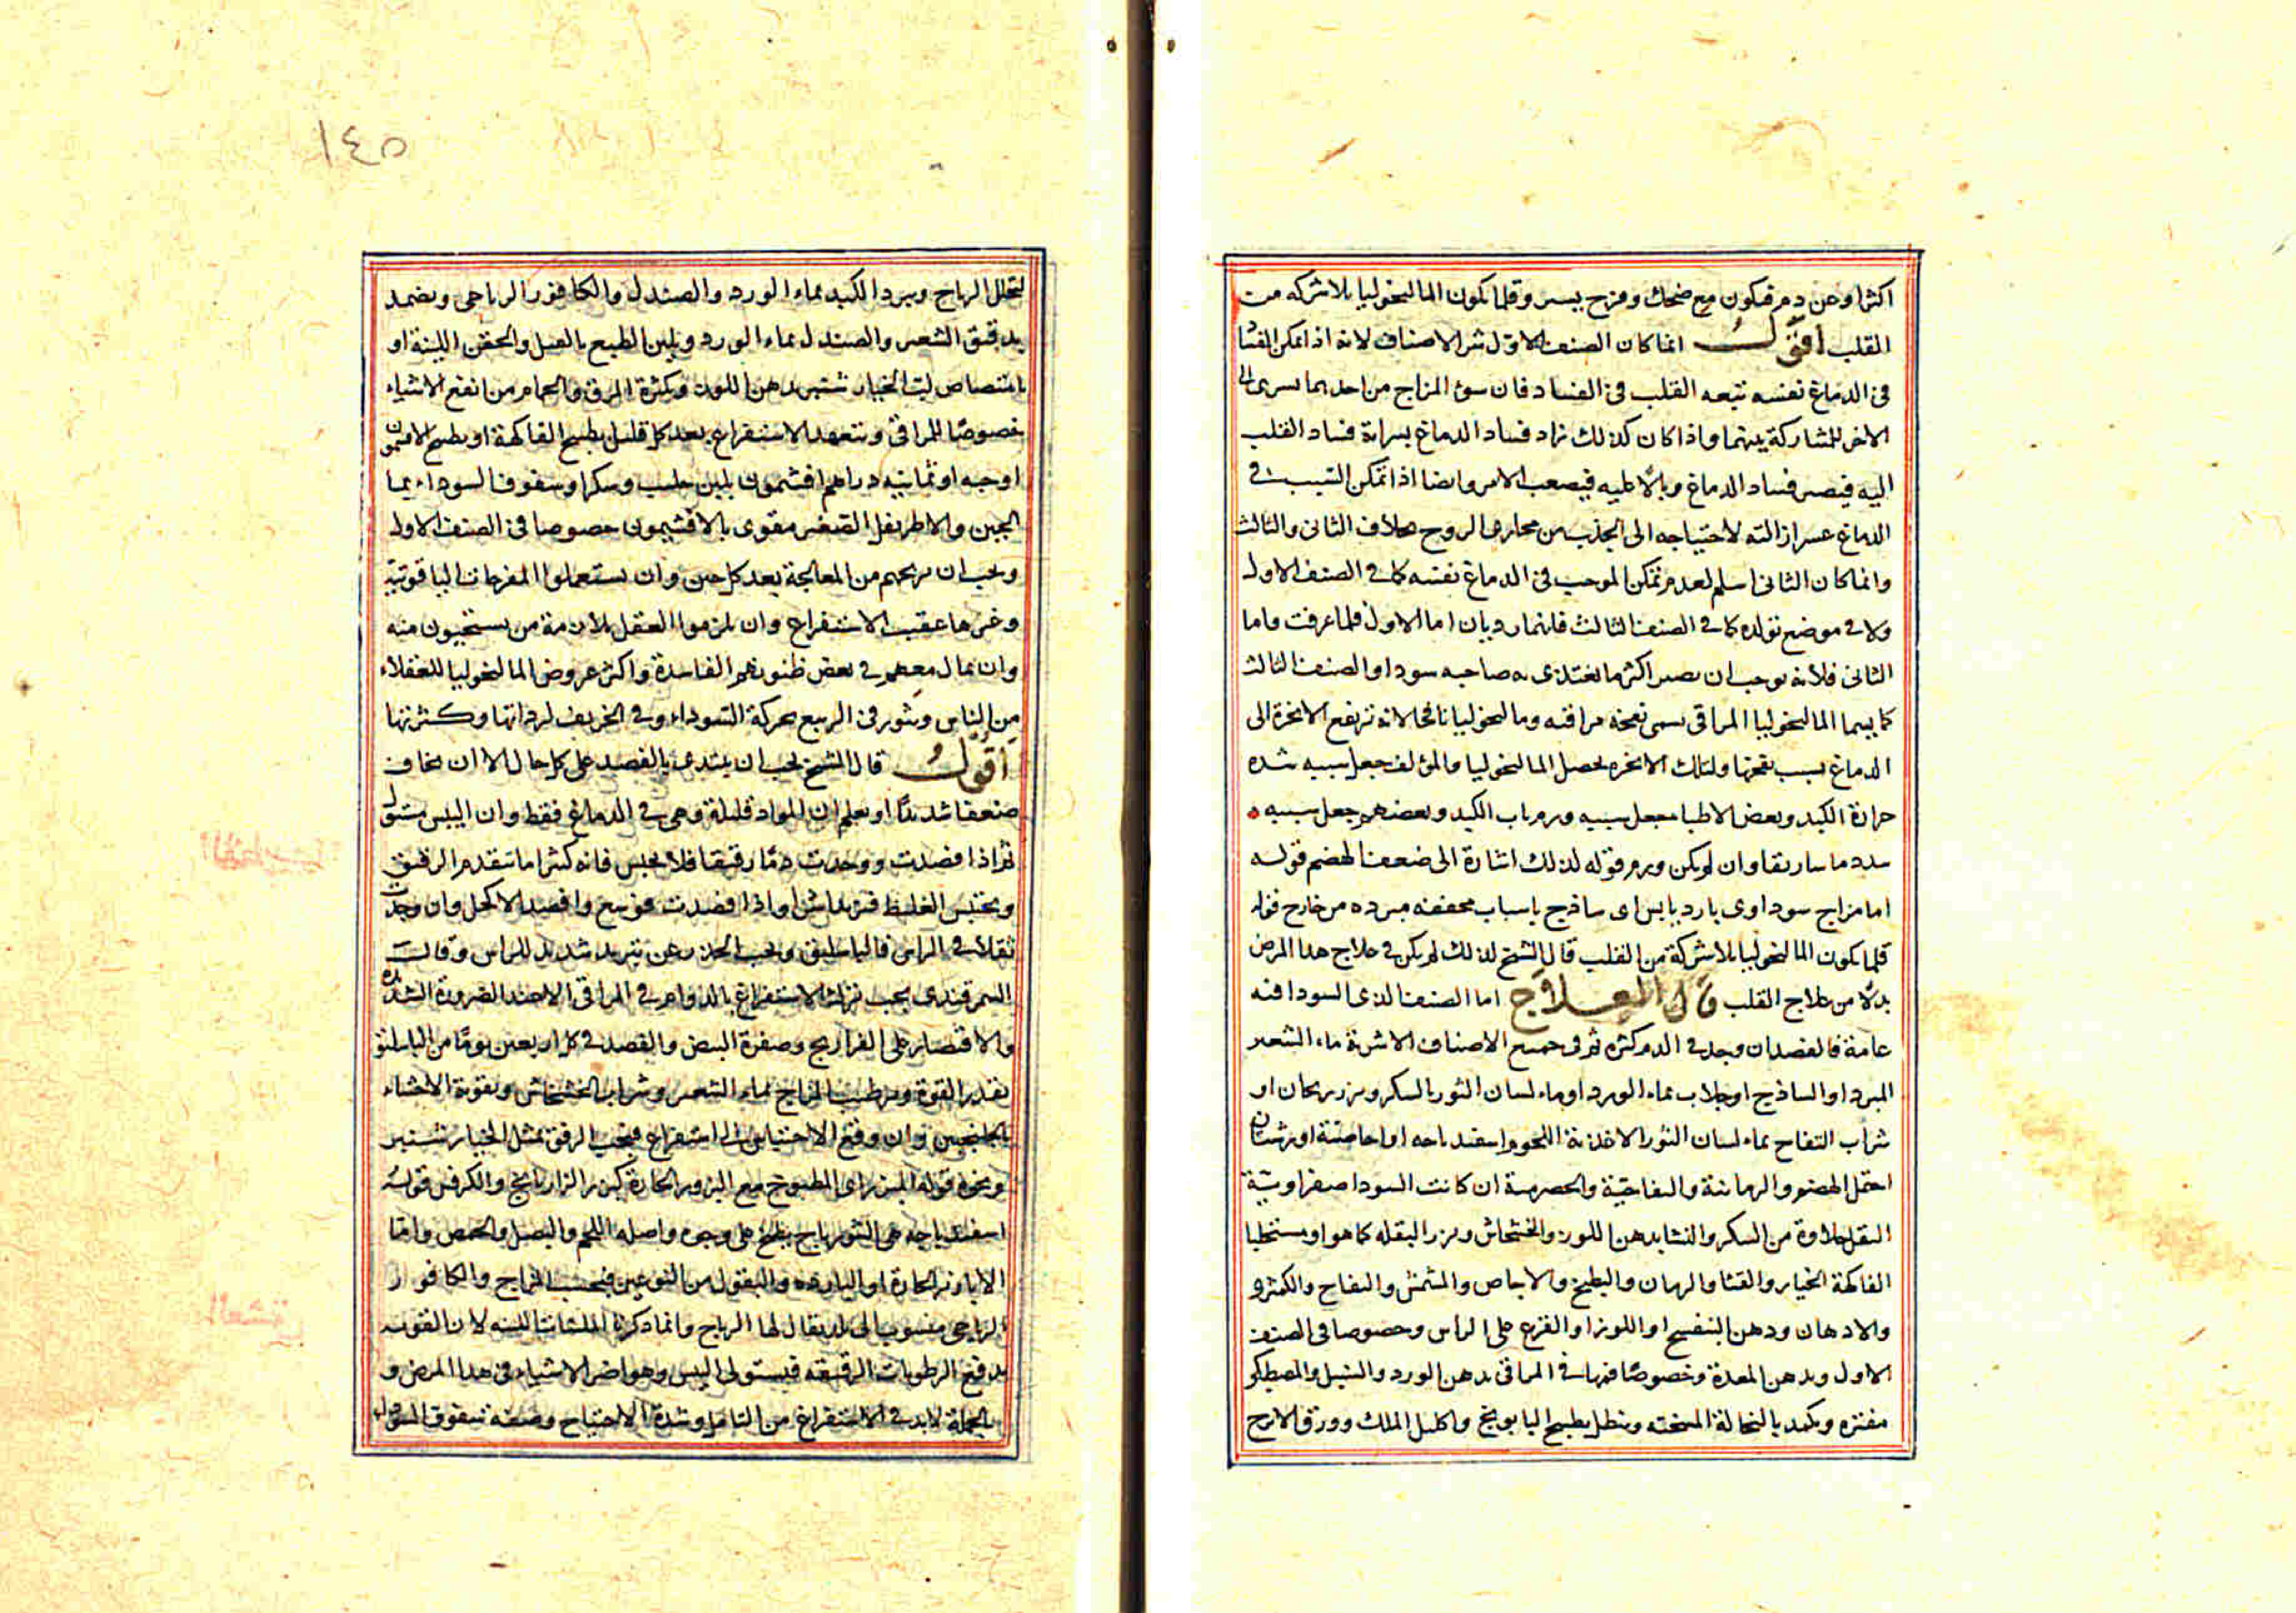 اكثر او عن دم فيكون مع ضحك وفرح يسير وقلما يكون الماليخوليا بلا شركه من
القلب اقول انما كان الصنف الاول شر الاصناف لانه اذا تمكن الفسا
في الدماغ نفسه تبعه القلب في الفساد فان سوء المزاج من احدهما يسرى الى
الاخر للمشاركة بينهما واذا كان كذلك زاد فساد الدماغ بسراية فساد القلب
اليه فيصير فساد الدماغ وبالا عليه فيصعب الامر وايضا اذا تمكن السبب في
الدماغ عسر ازالته لاحتياجه الى الجذب من مجارى الروح بخلاف الثانى والثالث
وانما كان الثانى اسلم لعدم تمكن الموجب في الدماغ نفسه كما في الصنف الاول
ولا في موضع تولده كما في الصنف الثالث فانهما رديان اما الاول فلما عرفت واما
الثانى فلانه يوجب ان يصير اكثر ما يغتذى به صاحبه سودا والصنف الثالث
كما يسمى الماليخوليا المراقى يسمى نفخه مراقيه وماليخوليا نافخا لانه ترتفع الابخرة الى
الدماغ بسبب نفخها ولتلك الابخره يحصل الماليخوليا والمؤلف جعل سببه شده
حرارة الكبد وبعض الاطبا جعل سببه ورم باب الكبد وبعضهم جعل سببه
سدد ماساريقا وان لم يكن ورم قوله لذلك اشارة الى ضعف الهضم قوله
اما مزاج سوداوى بارد يابس اى ساذج باسباب مجففه مبرده من خارج قوله
قلما يكون الماليخوليا بلا شركة من القلب قال الشيخ لذلك لم يكن في علاج هذا المرض
بدلا من علاج القلب قال العلاج اما الصنف الذى السودا فيه
عامة فالفصد ان وجد في الدم كثره ثم في جميع الاصناف الاشربة ماء الشعير
المبرد او الساذج او جلاب بماء الورد او ماء لسان الثور بالسكر وبزر ريحان او
شراب التفاح بماء لسان الثور الاغذية اللحوم اسفيدباجه او احامضة اورشتا ان
احتمل الهضم والرمانية والتفاحية والحصرمية ان كانت السودا صفراوية
النقل حلاوة من السكر والنشا بدهن اللوز والخشخاش وبزر البقله كما هو او مستحلبا
الفاكهة الخيار والقثا والرمان والبطيخ والاجاص والمشمش والتفاح والكمثرى
والادهان ودهن البنفسج او اللوز او القرع على الراس وخصوصا في الصنف
الاول ويدهن المعدة وخصوصا فمها في المراقى بدهن الورد والسنبل والمصطكى
مفتره ويكمد بالنخالة المسخنه وينطل بطبيخ البابونج واكليل الملك وورق الاترج
١٤٥
لتحلل الرياح ويبرد الكبد بماء الورد والصندل والكافور الرياحى ويضمد
بدقيق الشعير والصندل بماء الورد ويلين الطبع بالعسل والحقن اللينة او
بامتصاص لب الخيار شنبر بدهن اللوز وكثرة المرق والحمام من انفع الاشياء
خصوصا للمراقى ويتعهد الاستفراغ بعد كل قليل بطبيخ الفاكهة او بطبيخ الافتيمون
او حبه او ثمانيه دراهم افتيمون بلبن حليب وسكر او سفوف السوداء بماء
الجبن والاطريفل الصغير مقوى بالافتيمون خصوصا في الصنف الاول
ويجب ان يريحهم من المعالجة بعد كل حين وان يستعملوا المفرحات الياقوتية
وغيرها عقيب الاستفراغ وان يلزموا العقل بملازمة من يستحيون منه
وان يمال معهم في بعض ظنونهم الفاسدة واكثر عروض الماليخوليا للعقلاء
من الناس ويثور في الربيع بحركة السوداء وفي الخريف لرداتها وكثرتها
اقول قال الشيخ يجب ان يبتدى بالفصد على كل حال الا ان يخاف
ضعفا شديدا او يعلم ان المواد قليلة وهى في الدماغ فقط وان اليبس مستول
ثم اذا فصدت ووجدت دما رقيقا فلا تحبس فانه كثيرا ما يتقدم الرقيق
ويحتبس الغليظ فيزيد شرا واذا فصدت فوسع وافصد الاكحل وان وجدت
ثقلا في الراس فالباسليق ويجب الحذر عن تبريد شديد للراس وقال
السمرقندى يجب ترك الاستفراغ بالدواء في المراقى الا عند الضرورة الشديدة
والاقتصار على الفراريج وصفرة البيض والفصد في كل اربعين يوما من الباسليق
بقدر القوة وترطيب المزاج بماء الشعير وشراب الخشخاش وتقوية الاحشاء
بالجلنجبين وان وقع الاحتياج الى استفراغ فيجب الرفق بمثل الخيار شنبر
ونحوه قوله المبزر اى المطبوخ مع البزور الحارة كبزر الرازيانج والكرفس قوله
اسفيدباجه هى الشورباج يطبخ على وجوه واصله اللحم والبصل والحمص واما
الابازير الحارة او البارده والبقول من النوعين فبحسب المزاج والكافور
الرياحى منسوب الى بلد يقال لها الرياح وانما ذكر الملينات اللينه لان القويه
يدفع الرطوبات الرقيقه فيستولى اليبس وهو اضر الاشياء في هذا المرض و
بالجملة لابد في الاستفراغ من التامل وشدة الاحتياج وصفه سفوف السودا